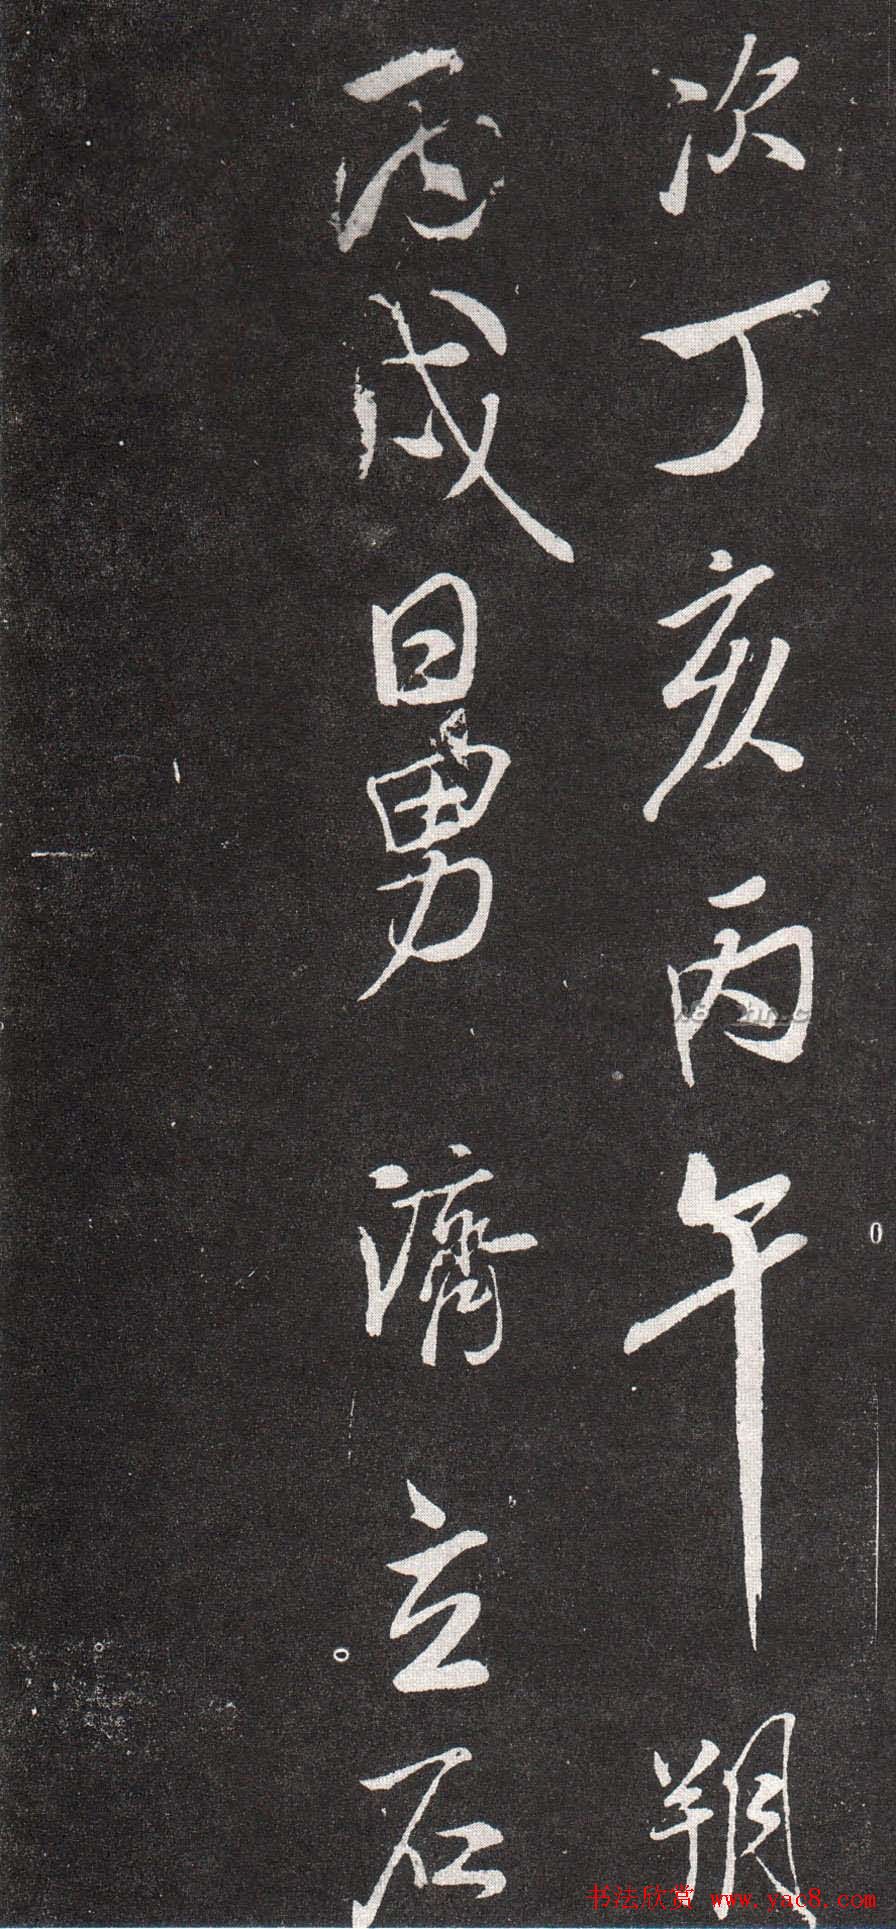 次丁亥丙午朔
庚戌日男濟立石
书法欣赏 www.yac8.com